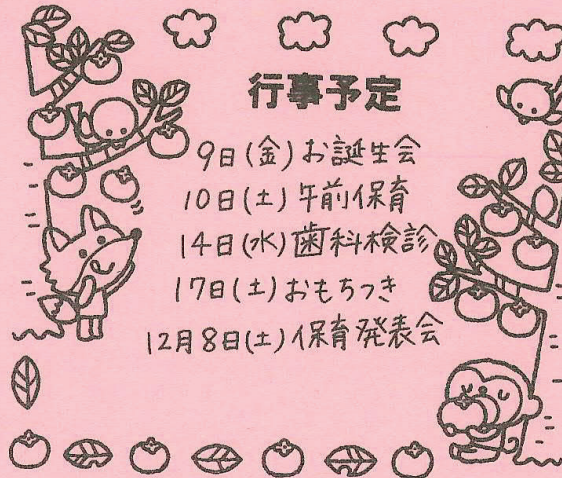 行事予定
9日(金)お誕生会
10日(土)午前保育
14日(水)歯科検診
17日(土)おもちつき
12月8日(土)保育発表会